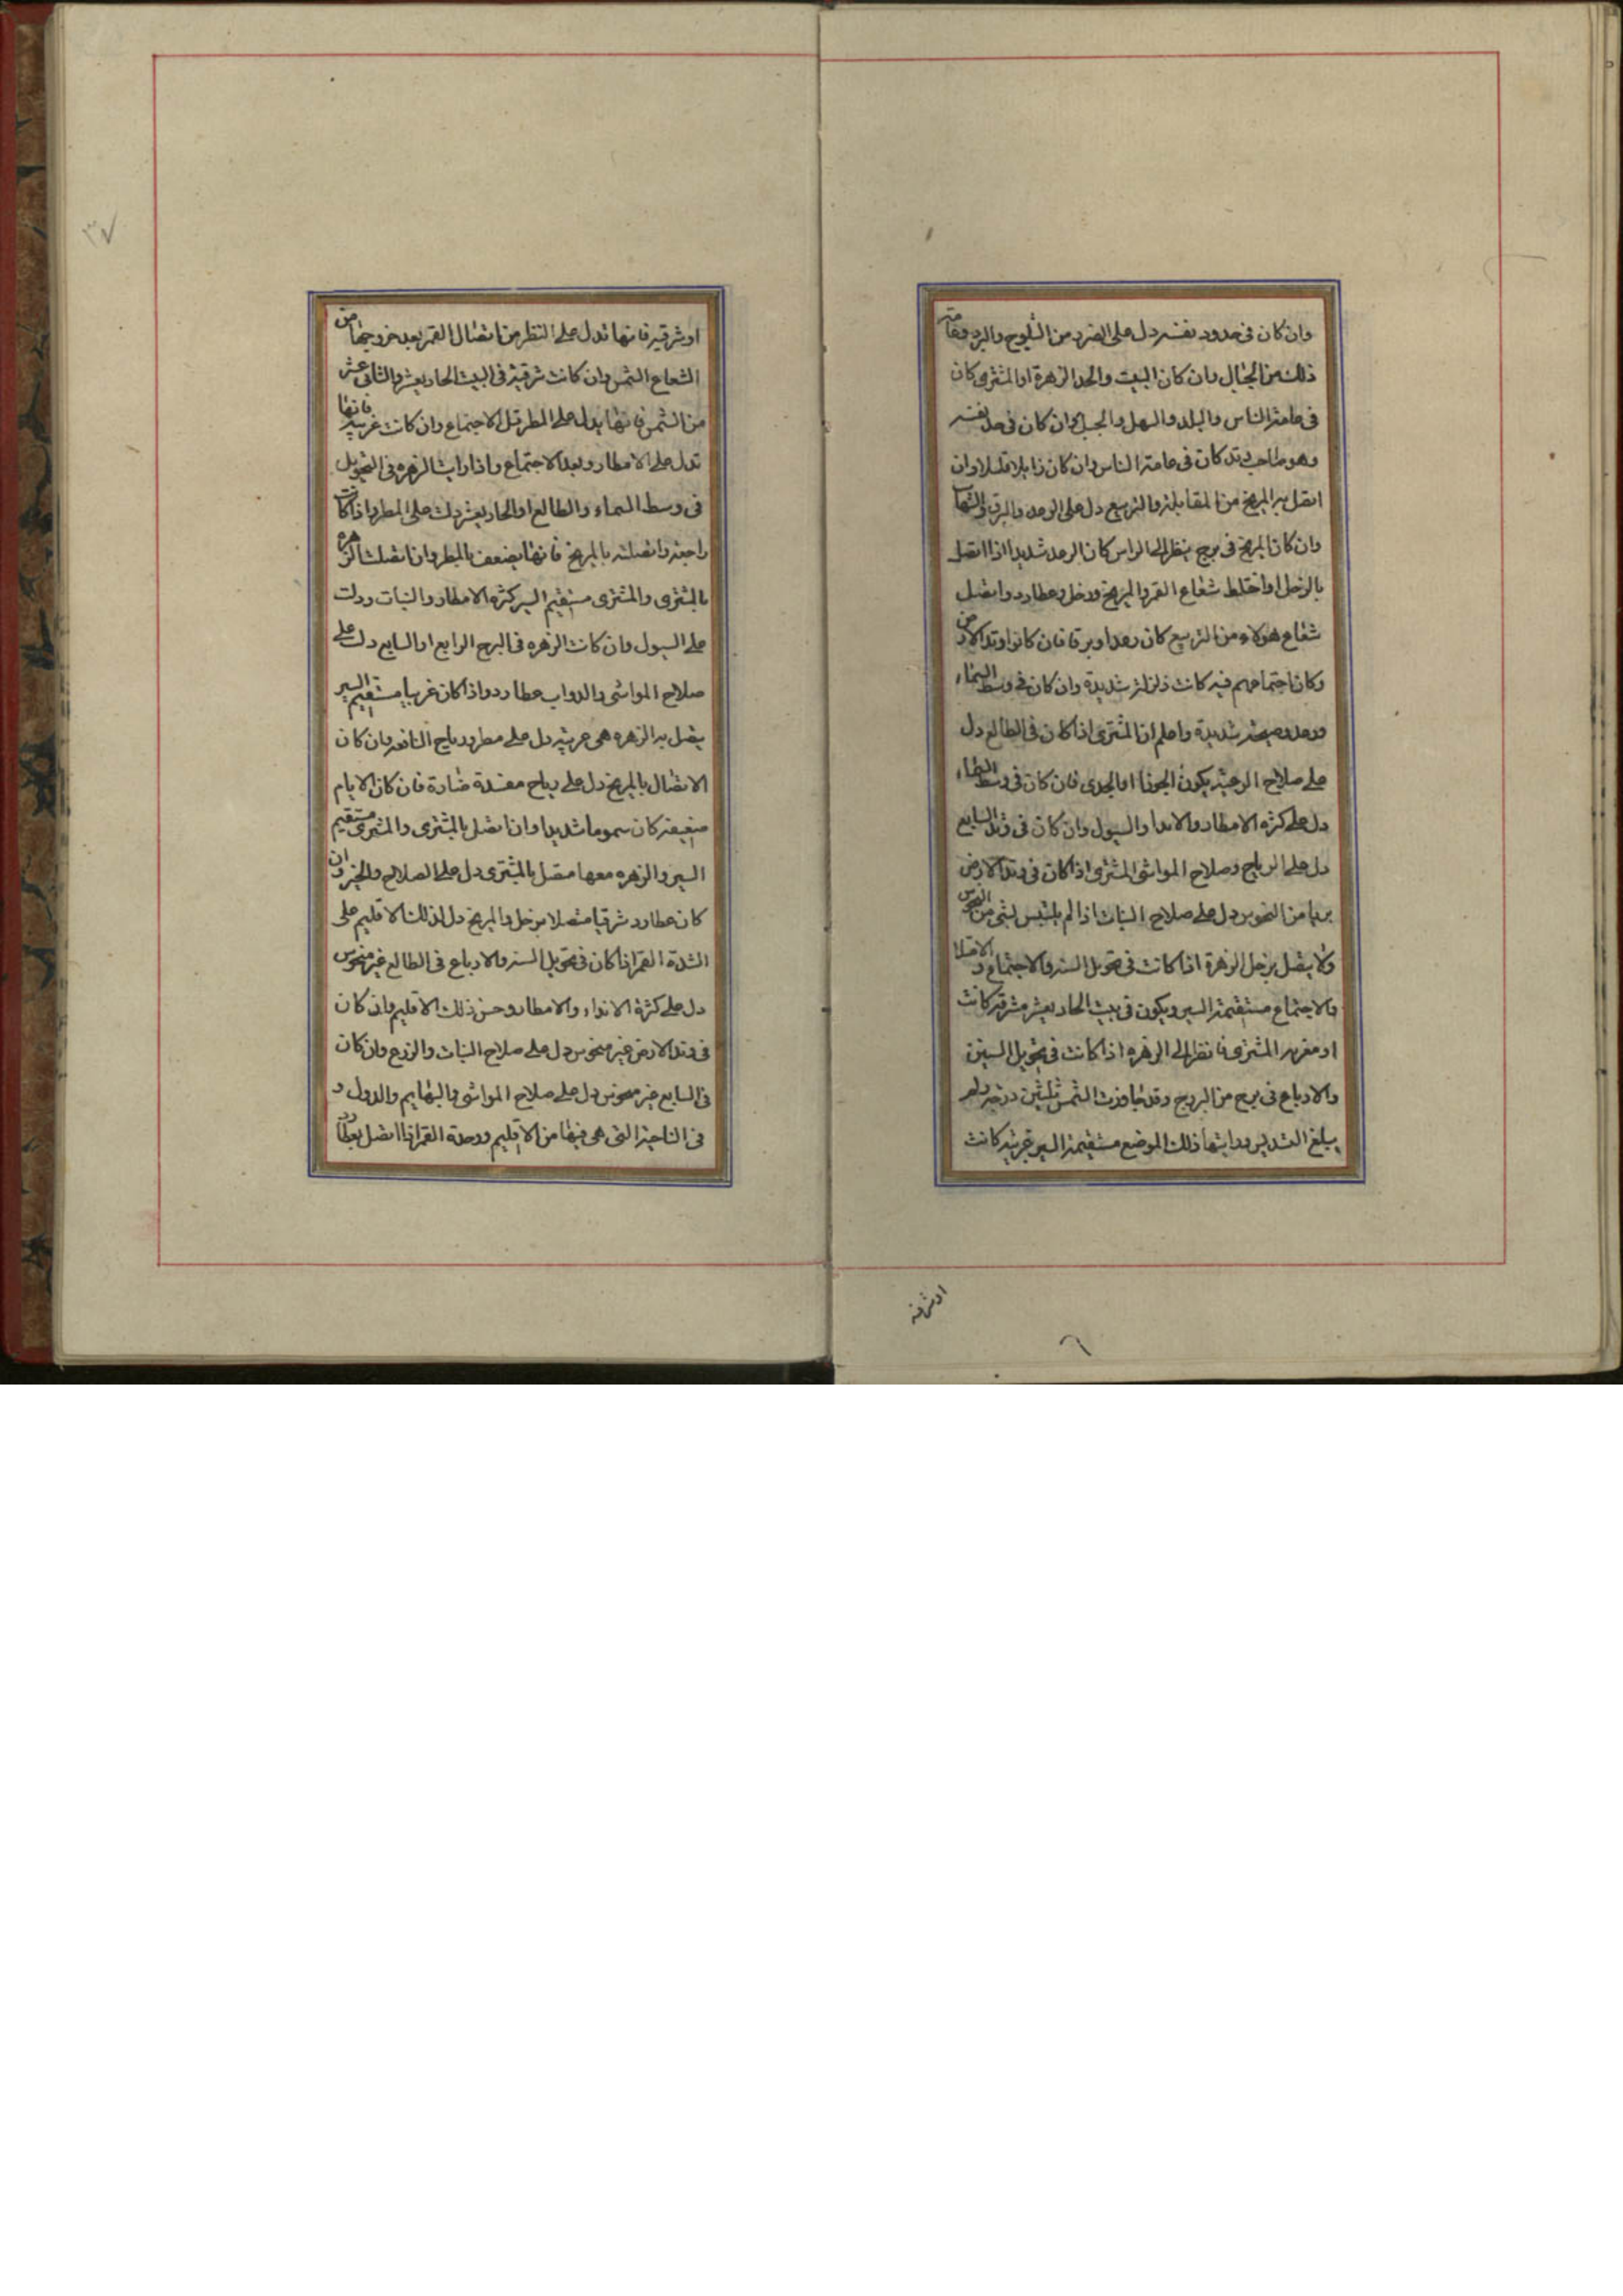 وان كان فى حدود نفسه دل على الضرد من الثلوج والبرد وعامته
ذلك من الجبال وان كان البيت والحد الزهرة او المشترى كان
فى عامة الناس والبلد والسهل والجبل وان كان فى حد نفسه
وهو صاحب وتد كان فى عامة الناس وان كان زايلا قليلا وان
اتصل به المريخ من المقابلة والتربيع دل على الرعد والبرق والشهاب
وان كان المريخ فى برج ينظر الى الراس كان الرعد شديدا اذا اتصل
بالزحل او اختلط شعاع القمر والمريخ وزحل وعطارد واتصل
شعاع هولاء من التربيع كان رعدا وبرقا فان كانوا وتد الارض
وكان اجتماعهم فيه كانت زلزلة شديدة وان كان فى وسط السماء
ورعد وصيحة شديدة واعلم ان المشترى اذا كان فى الطالع دل
على صلاح الرعية يكون الجوزا او الجدى فان كان فى وسط السماء
دل على كثرة الامطار والاندا والسيول وان كان فى وتد السابع
دل على الرياح وصلاح المواشى المشترى اذا كان فى وتد الارض
بريا من النحوس دل على صلاح النبات اذا لم يلتبس بشى من النحوس
ولا يتصل بزحل الزهرة اذا كانت فى تحويل السنة والاجتماع و الامتلا
والاجتماع مستقيمة السير ويكون فى بيت الحاديعشر مشرقية كانت
او مغربه المشترى فانظر الى الزهره اذا كانت فى تحويل السنين
والارباع فى برج من البروج وقد جاوزت الشمس ثلثين درجة ولم
يبلغ التسديس ورايتها ذلك الموضع مستقيمة السير غربية كانت
اوشرقيه
٣٧
او شرقيه فانها تدل على النظر من اتصال القمر بعد خروجها من
الشعاع الشمس وان كانت شرقية فى البيت الحاديعشر والثانى عشر
من الشمس فانها يدل على المطر قبل الاجتماع وان كانت غربية فانها
تدل على الامطار وبعد الاجتماع واذا رايت الزهره فى التحويل
فى وسط السماء والطالع او الحاديعشر دلت على المطر واذا كانت
راجعة واتصلت بالمريخ فانها يضعف بالمطر وان اتصلت الزهره
بالمشترى والمشترى مستقيم السير كثرة الامطار والنبات ودلت
على السيول وان كانت الزهره فى البرج الرابع او السابع دلت على
صلاح المواشى والدواب عطارد واذا كان غربيا مستقيم السير
يتصل به الزهره هى عربيه دل على مطر ورياح النافعه وان كان
الاتصال بالمريخ دل على رياح مفسدة ضارة فان كان الايام
صيفية كان سموما شديدا وان اتصل بالمشترى والمشترى مستقيم
السير والزهره معها متصل بالمشترى دل على الصلاح والخير وان
كان عطارد شرقيا متصلا بزحل والمريخ دل لذلك الاقليم على
الشدة القمر اذا كان فى تحويل السنه والارباع فى الطالع غير منحوس
دل على كثرة الانداء والامطار وحسن ذلك الاقليم وان كان
فى وتد الارض غير منحوس دل على صلاح النبات والزرع وان كان
فى السابع غير منحوس دل على صلاح المواشى والبهايم والدول و
فى الناحية التى هى فيها من الاقليم ورحلة القمر اذا اتصل بعطارد